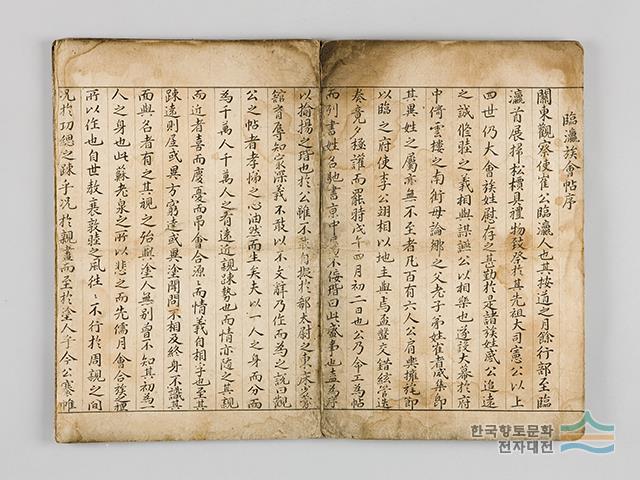 臨瀛族會帖序
關東觀察使崔公臨瀛人也其按道之月餘行部至臨
瀛首展掃松檟具禮物致祭於其先祖大司憲公以上
四世仍大會族姓慰存之甚勤於是諸族姓感公追遠
之誠修睦之義相與謀讌公以相樂也遂設大幕於府
中倚雲樓之南街毋論鄉之父老子弟姓崔者咸集即
其異姓之屬亦無不至者凡百有六人公肩輿擁旄節
以臨之府使李公翊相以地主與焉盃盤交錯絃管迭
奏竟夕極讙而罷時戊午四月初二日也公乃命工為帖
而列書姓名馳書京中不佞瑎曰此盛事也盍為序
以揄揚之瑎也於公雖不敢自擬於郗太尉之東床
館甥辱知家深義不敢以不文辭乃作而為之說曰觀
公之帖者孝悌之心油然而生矣夫以一人之身而分而
為千萬人千萬人之有遠近親疎勢也而情亦隨之其親
而近者喜而慶憂而吊會合源〻而情義自相孚也至其
疎遠則居或異方窮達或異塗聞問不相及終身不識其
面與名者有之其視之殆與塗人無別曾不知其初為一
人之身也此蘇老泉之所以悲之而先儒月會合族之禮
所以作也自世教衰敦睦之風往〻不行於周親之間
況於功緦之疎乎況於親盡而至於塗人乎今公褰帷
한국향토문화
전자대전